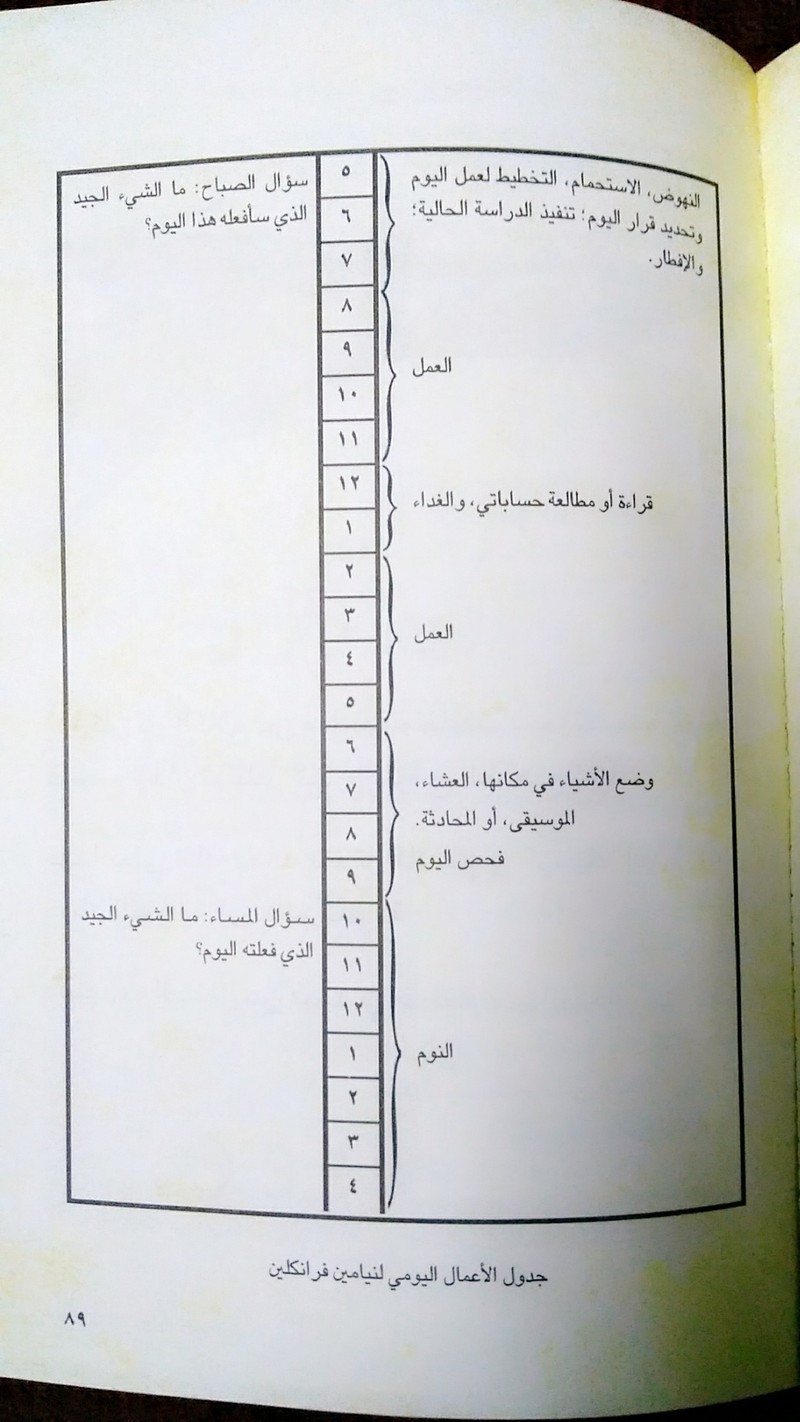 النهوض، الاستحمام، التخطيط لعمل اليوم
وتحديد قرار اليوم؛ تنفيذ الدراسة الحالية؛
والإفطار.
٥
٦
٧
سؤال الصباح: ما الشيء الجيد
الذي سأفعله هذا اليوم؟
العمل
٨
٩
١٠
١١
قراءة أو مطالعة حساباتي، والغداء
١٢
١
العمل
٢
٣
٤
٥
وضع الأشياء في مكانها، العشاء،
الموسيقى، أو المحادثة.
فحص اليوم
٦
٧
٨
٩
سؤال المساء: ما الشيء الجيد
الذي فعلته اليوم؟
النوم
١٠
١١
١٢
١
٢
٣
٤
جدول الأعمال اليومي لنيامين فرانكلين
٨٩